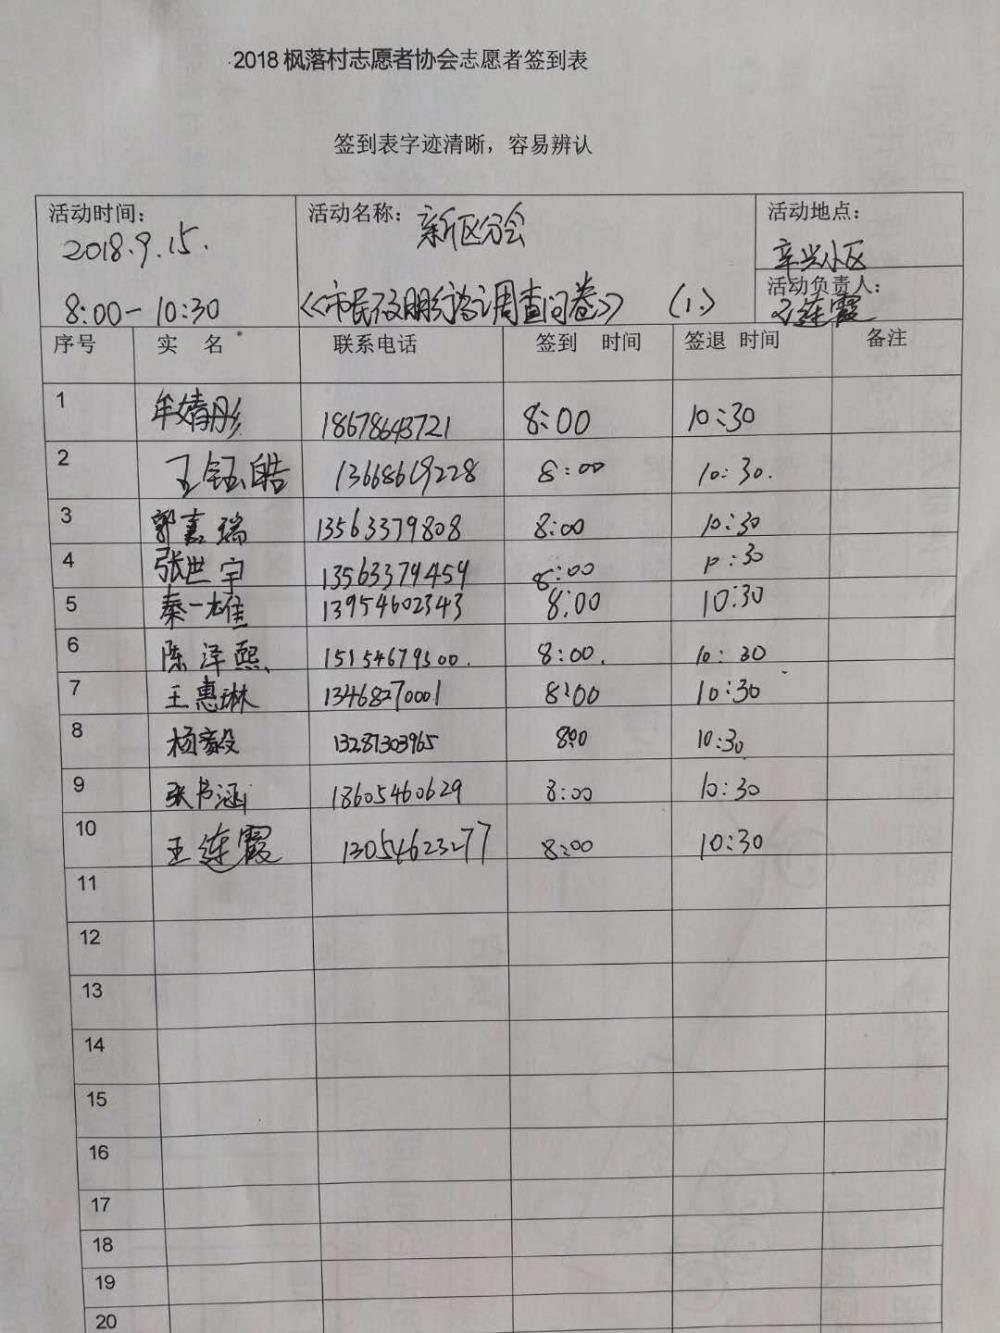 2018枫落村志愿者协会志愿者签到表
签到表字迹清晰，容易辨认
活动时间： 活动名称： 新区分会 活动地点：
2018.9.15. 辛兴小区
8:00-10:30 《市民不文明行为调查问卷》 (1.) 活动负责人：
王连霞
序号 实 名 联系电话 签到 时间 签退 时间 备注
1 牟婧彤 18678643721 8:00 10:30
2 王钰皓 13668619228 8:00 10:30.
3 郭嘉瑞 13563379808 8:00 10:30
4 张世宇 13563379459 8:00 10:30
5 秦一雄 13954602343 8:00 10:30
6 陈泽熙 15154679500. 8:00. 10:30
7 王惠琳 13468270001 8:00 10:30
8 杨毅 13287303965 8:00 10:30
9 张书涵 18605460629 8:00 10:30
10 王连霞 13054623277 8:00 10:30
11
12
13
14
15
16
17
18
19
20